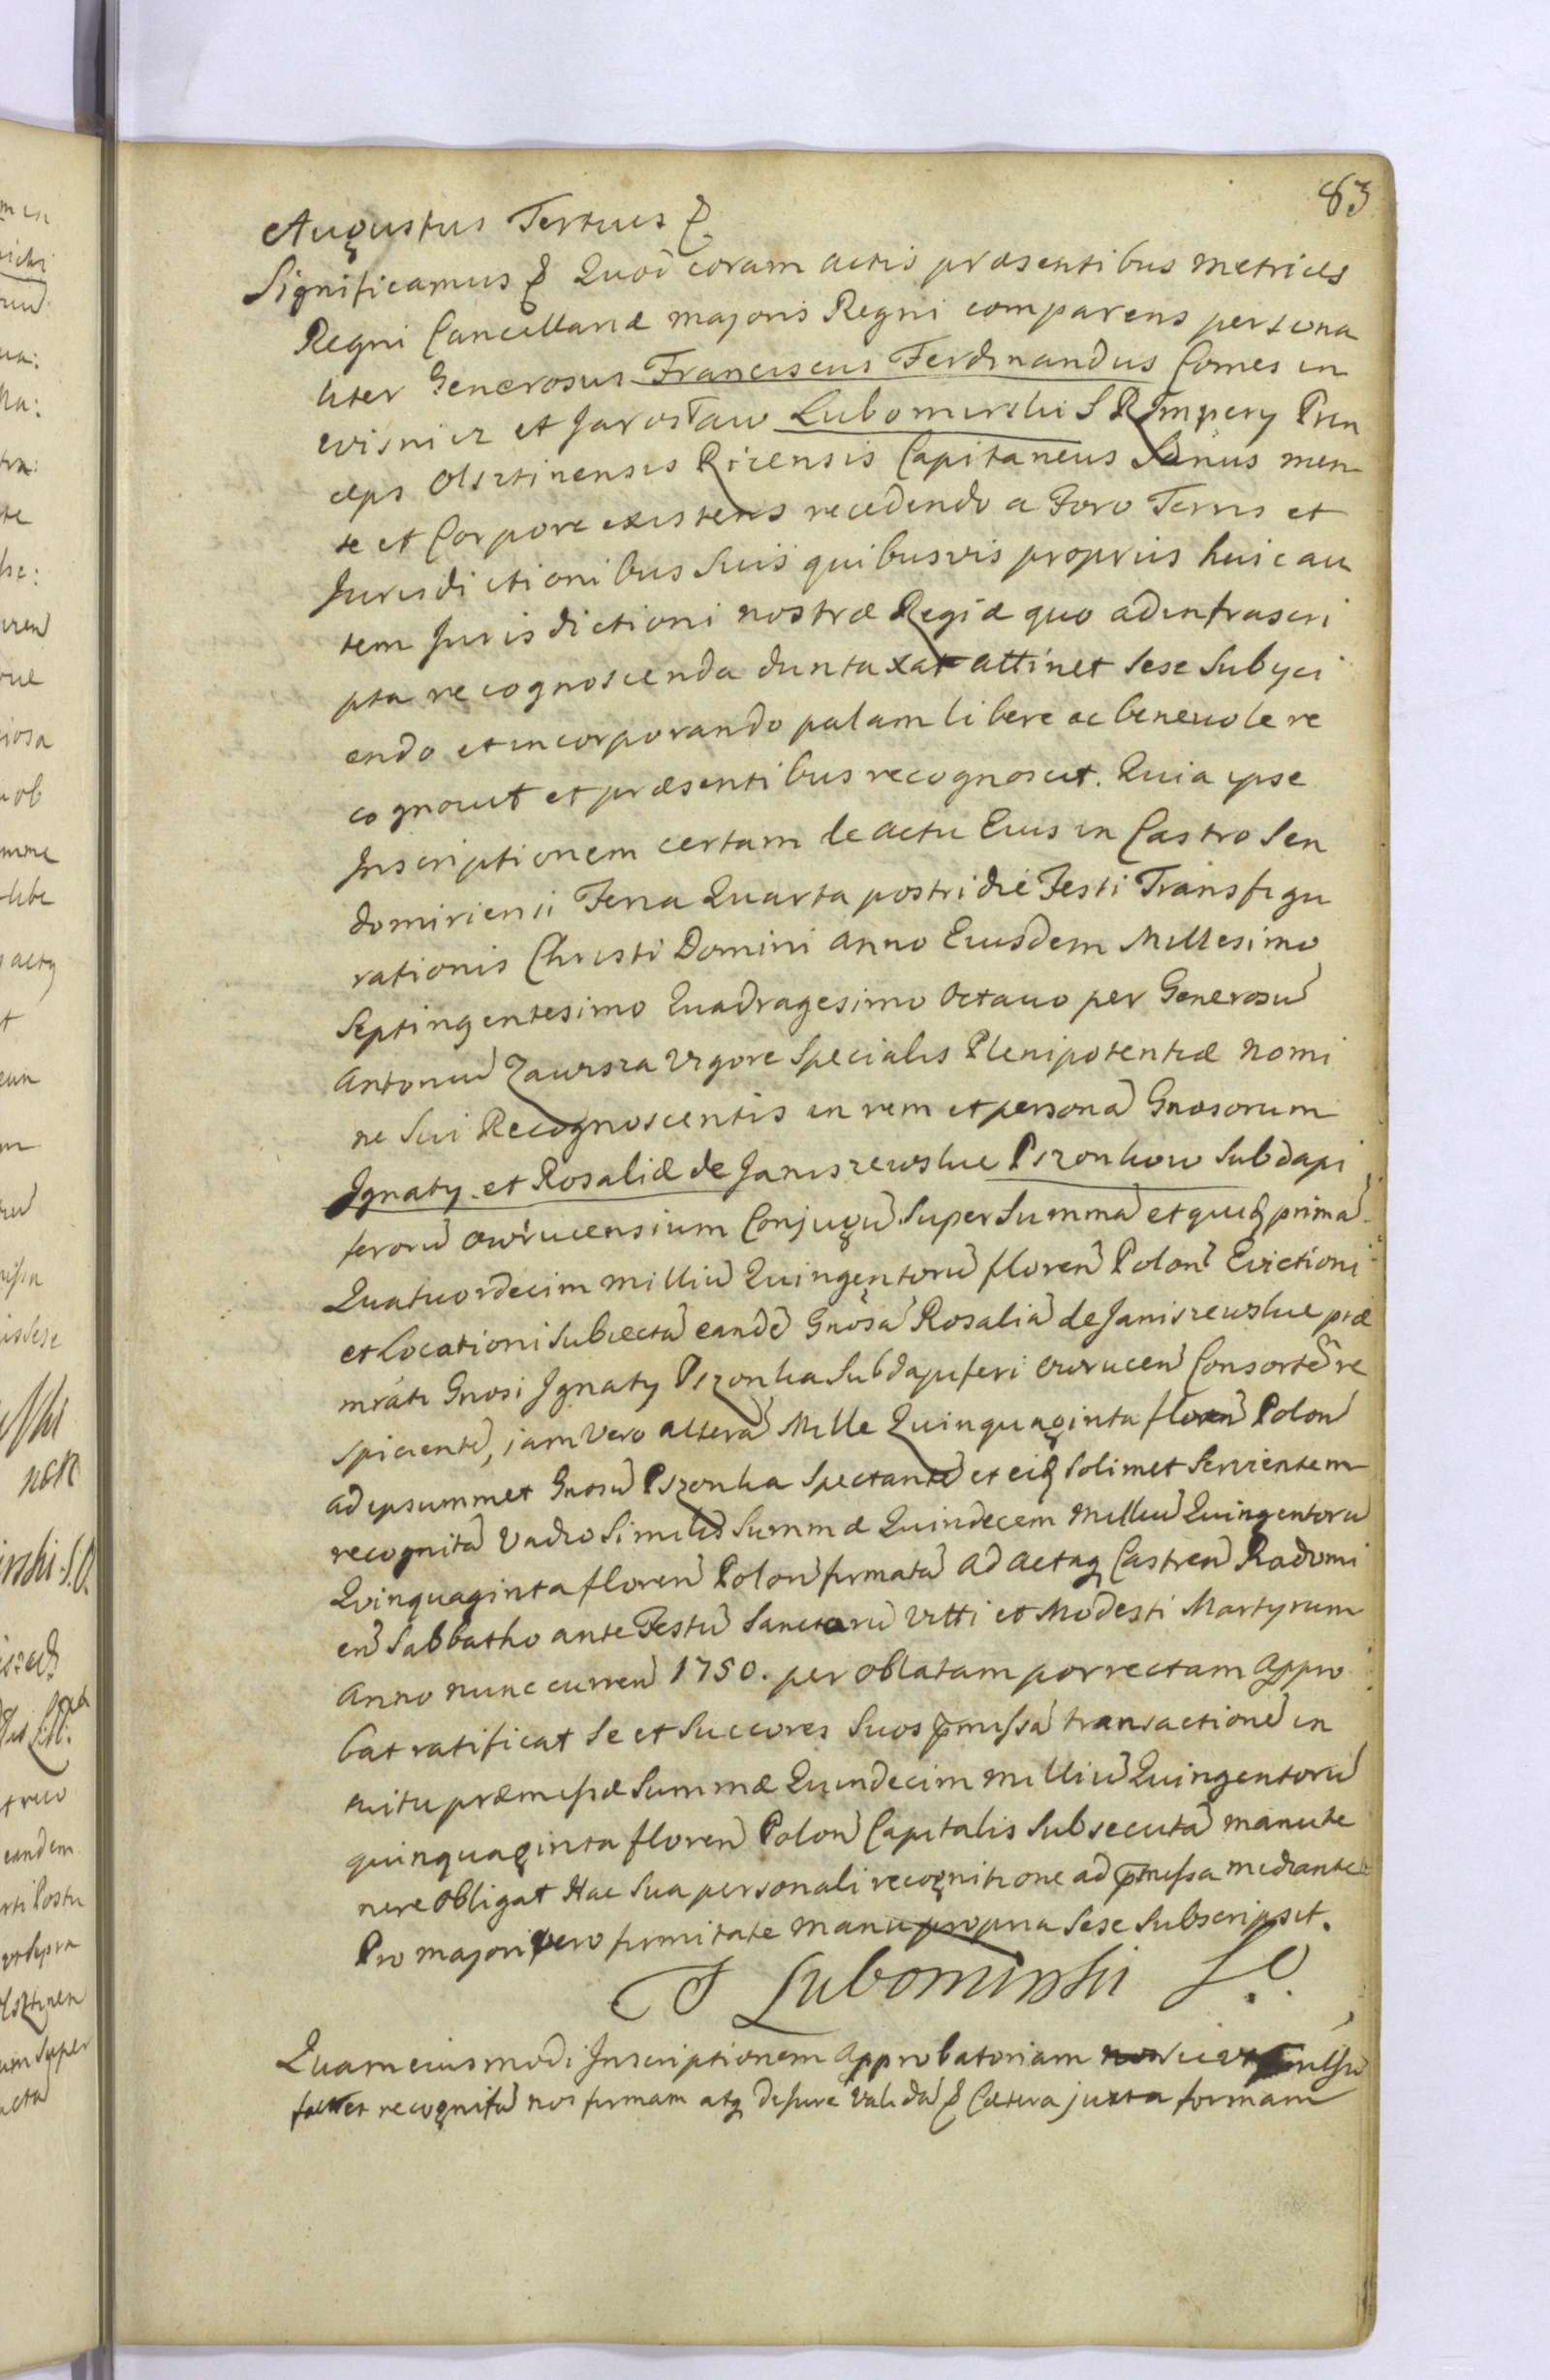 83
Augustus Tertius &
Significamus & Quod coram actis præsentibus Metrices
Regni Cancellariæ majoris Regni comparens persona
liter Generosus Franciscus Ferdinandus Comes in
Wisnicz et Jarosław Lubomirski S R Impery Prin
ceps Olsztinensis Ricensis Capitaneus Sanus men
te et Corpore existens recedendo a Foro Terris et
Jurisdictionibus Suis quibusvis proprijs huic au
tem Jurisdictioni nostræ Regiæ quo ad infrascri
pta recognoscenda duntaxat attinet sese Subyci
endo et incorporando palam libere ac benevole re
cognovit et præsentibus recognoscit. Quia ipse
Inscriptionem certam de actu Eius in Castro Sen
domiriensi Feria Quarta postridie Festi Transfigu
rationis Christi Domini Anno Eiusdem Millesimo
Septingentesimo Quadragesimo Octavo per Generosu
Antoniu Zawisza Vigore Specialis Plenipotentiæ nomi
ne Sui Recognoscentis in rem et persona Gnosorum
Ignaty et Rosaliæ de Janiszewskie Pszonkow Subdapi
feroru Owrucensium Conjugu Super Summa et quidē prima
Quatuordecim milliu Quingentoru floren Polon Evictioni
et Locationi Subiecta eande Gnosa Rosalia de Janiszewskie præ
mrati Gnosi Ignaty Pszonka Subdapiferi Owrucen Consorte re
spiciente, iam Vero altera Mille Quinquaginta floren Polon
ad ipsummet Gnosu Pszonka Spectante et eiq solimet Servientem
recognita Vadio Similis Summæ Quindecem milliu Quingentoru
Quinquaginta floren Polon firmata ad actaq Castren Radomi
en Sabbatho ante Festu Sanctoru Vitti et Modesti Martyrum
Anno nunc curren 1750. per oblatam porrectam Appro
bat ratificat Se et Succores Suos pmissa transactione in
tuitu præmissæ Summæ Quindecim milliu Quingentoru
quinquaginta floren Polon Capitalis Subsecuta manute
nere obligat Hac Sua personali recognitione ad pmissa mediante
Pro majori vero firmitate manu propria Sese Subscripsit.
F Lubomirski S.O.
Quam eiusmodi Inscriptionem Approbatoriam
recognita nos firmam atq de jure Valida & Cætera juxta formam